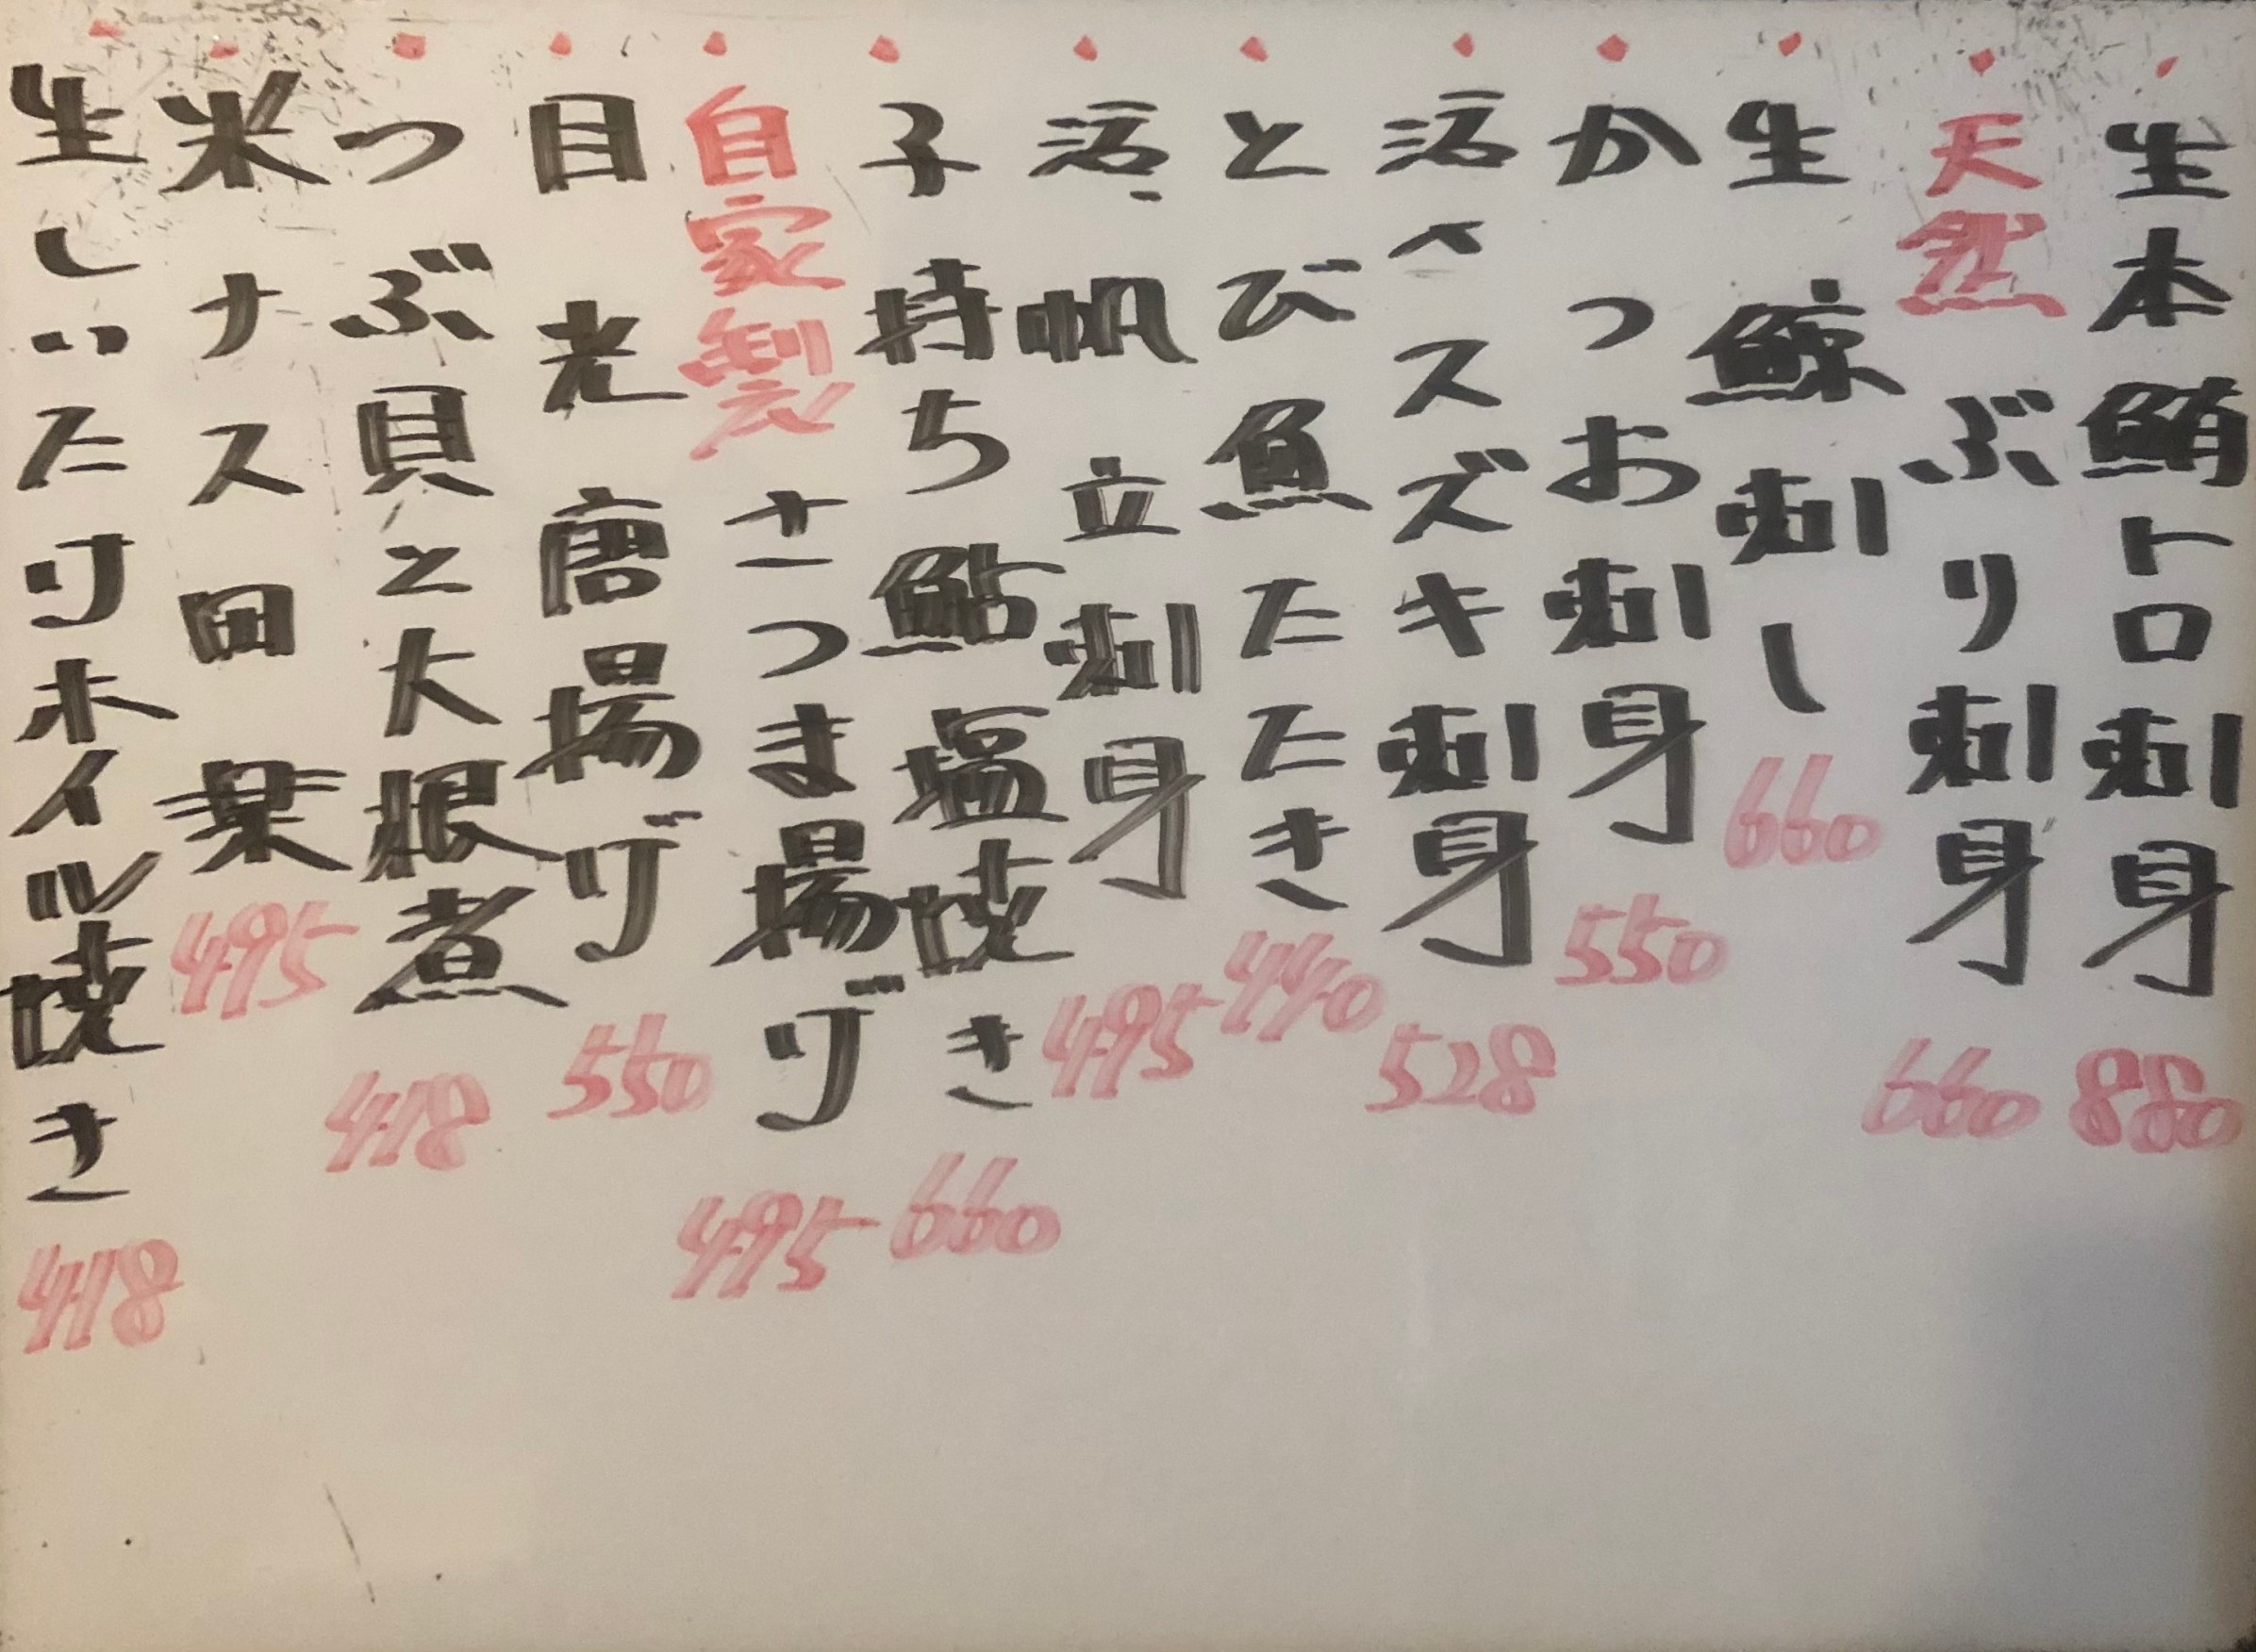 生本鮪トロ刺身 880
天然ぶり刺身 660
生鯨刺し 660
かつお刺身 550
活〆スズキ刺身 528
とび魚たたき 440
活帆立刺身 495
子持ち鮎塩焼き 660
自家製さつま揚げ 495
目光唐揚げ 550
つぶ貝と大根煮 418
米ナス田楽 495
生しいたけホイル焼き 418